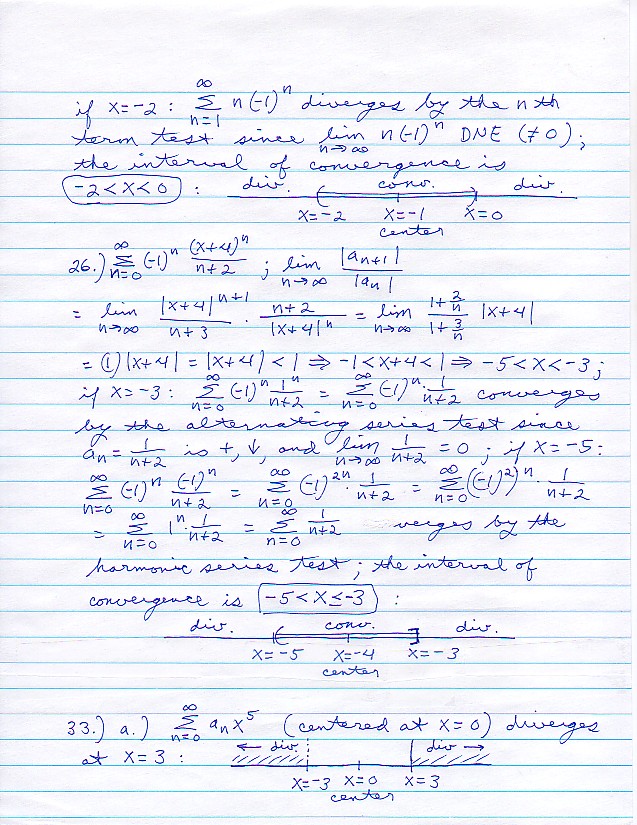 if x=-2 : ∞∑n=1 n(-1)^n diverges by the nth
term test since lim n→∞ n(-1)^n DNE (≠0);
the interval of convergence is
-2<x<0 : div. conv. div.
x=-2 x=-1 x=0
center
26.) ∞∑n=0 (-1)^n (x+4)^n/(n+2) ; lim n→∞ |an+1|/|an|
= lim n→∞ |x+4|^(n+1)/(n+3) · (n+2)/|x+4|^n = lim n→∞ (1+2/n)/(1+3/n) |x+4|
= (1)|x+4| = |x+4| < 1 ⇒ -1<x+4<1 ⇒ -5<x<-3;
if x=-3 : ∞∑n=0 (-1)^n 1^n/(n+2) = ∞∑n=0 (-1)^n · 1/(n+2) converges
by the alternating series test since
an = 1/(n+2) is +, ↓, and lim n→∞ 1/(n+2) = 0 ; if x=-5:
∞∑n=0 (-1)^n (-1)^n/(n+2) = ∞∑n=0 (-1)^2n · 1/(n+2) = ∞∑n=0 ((-1)^2)^n · 1/(n+2)
= ∞∑n=0 1^n · 1/(n+2) = ∞∑n=0 1/(n+2) verges by the
harmonic series test ; the interval of
convergence is -5<x≤-3 :
div. conv. div.
x=-5 x=-4 x=-3
center
33.) a.) ∞∑n=0 an x^5 (centered at x=0) diverges
at x=3 : ← div. div →
x=-3 x=0 x=3
center